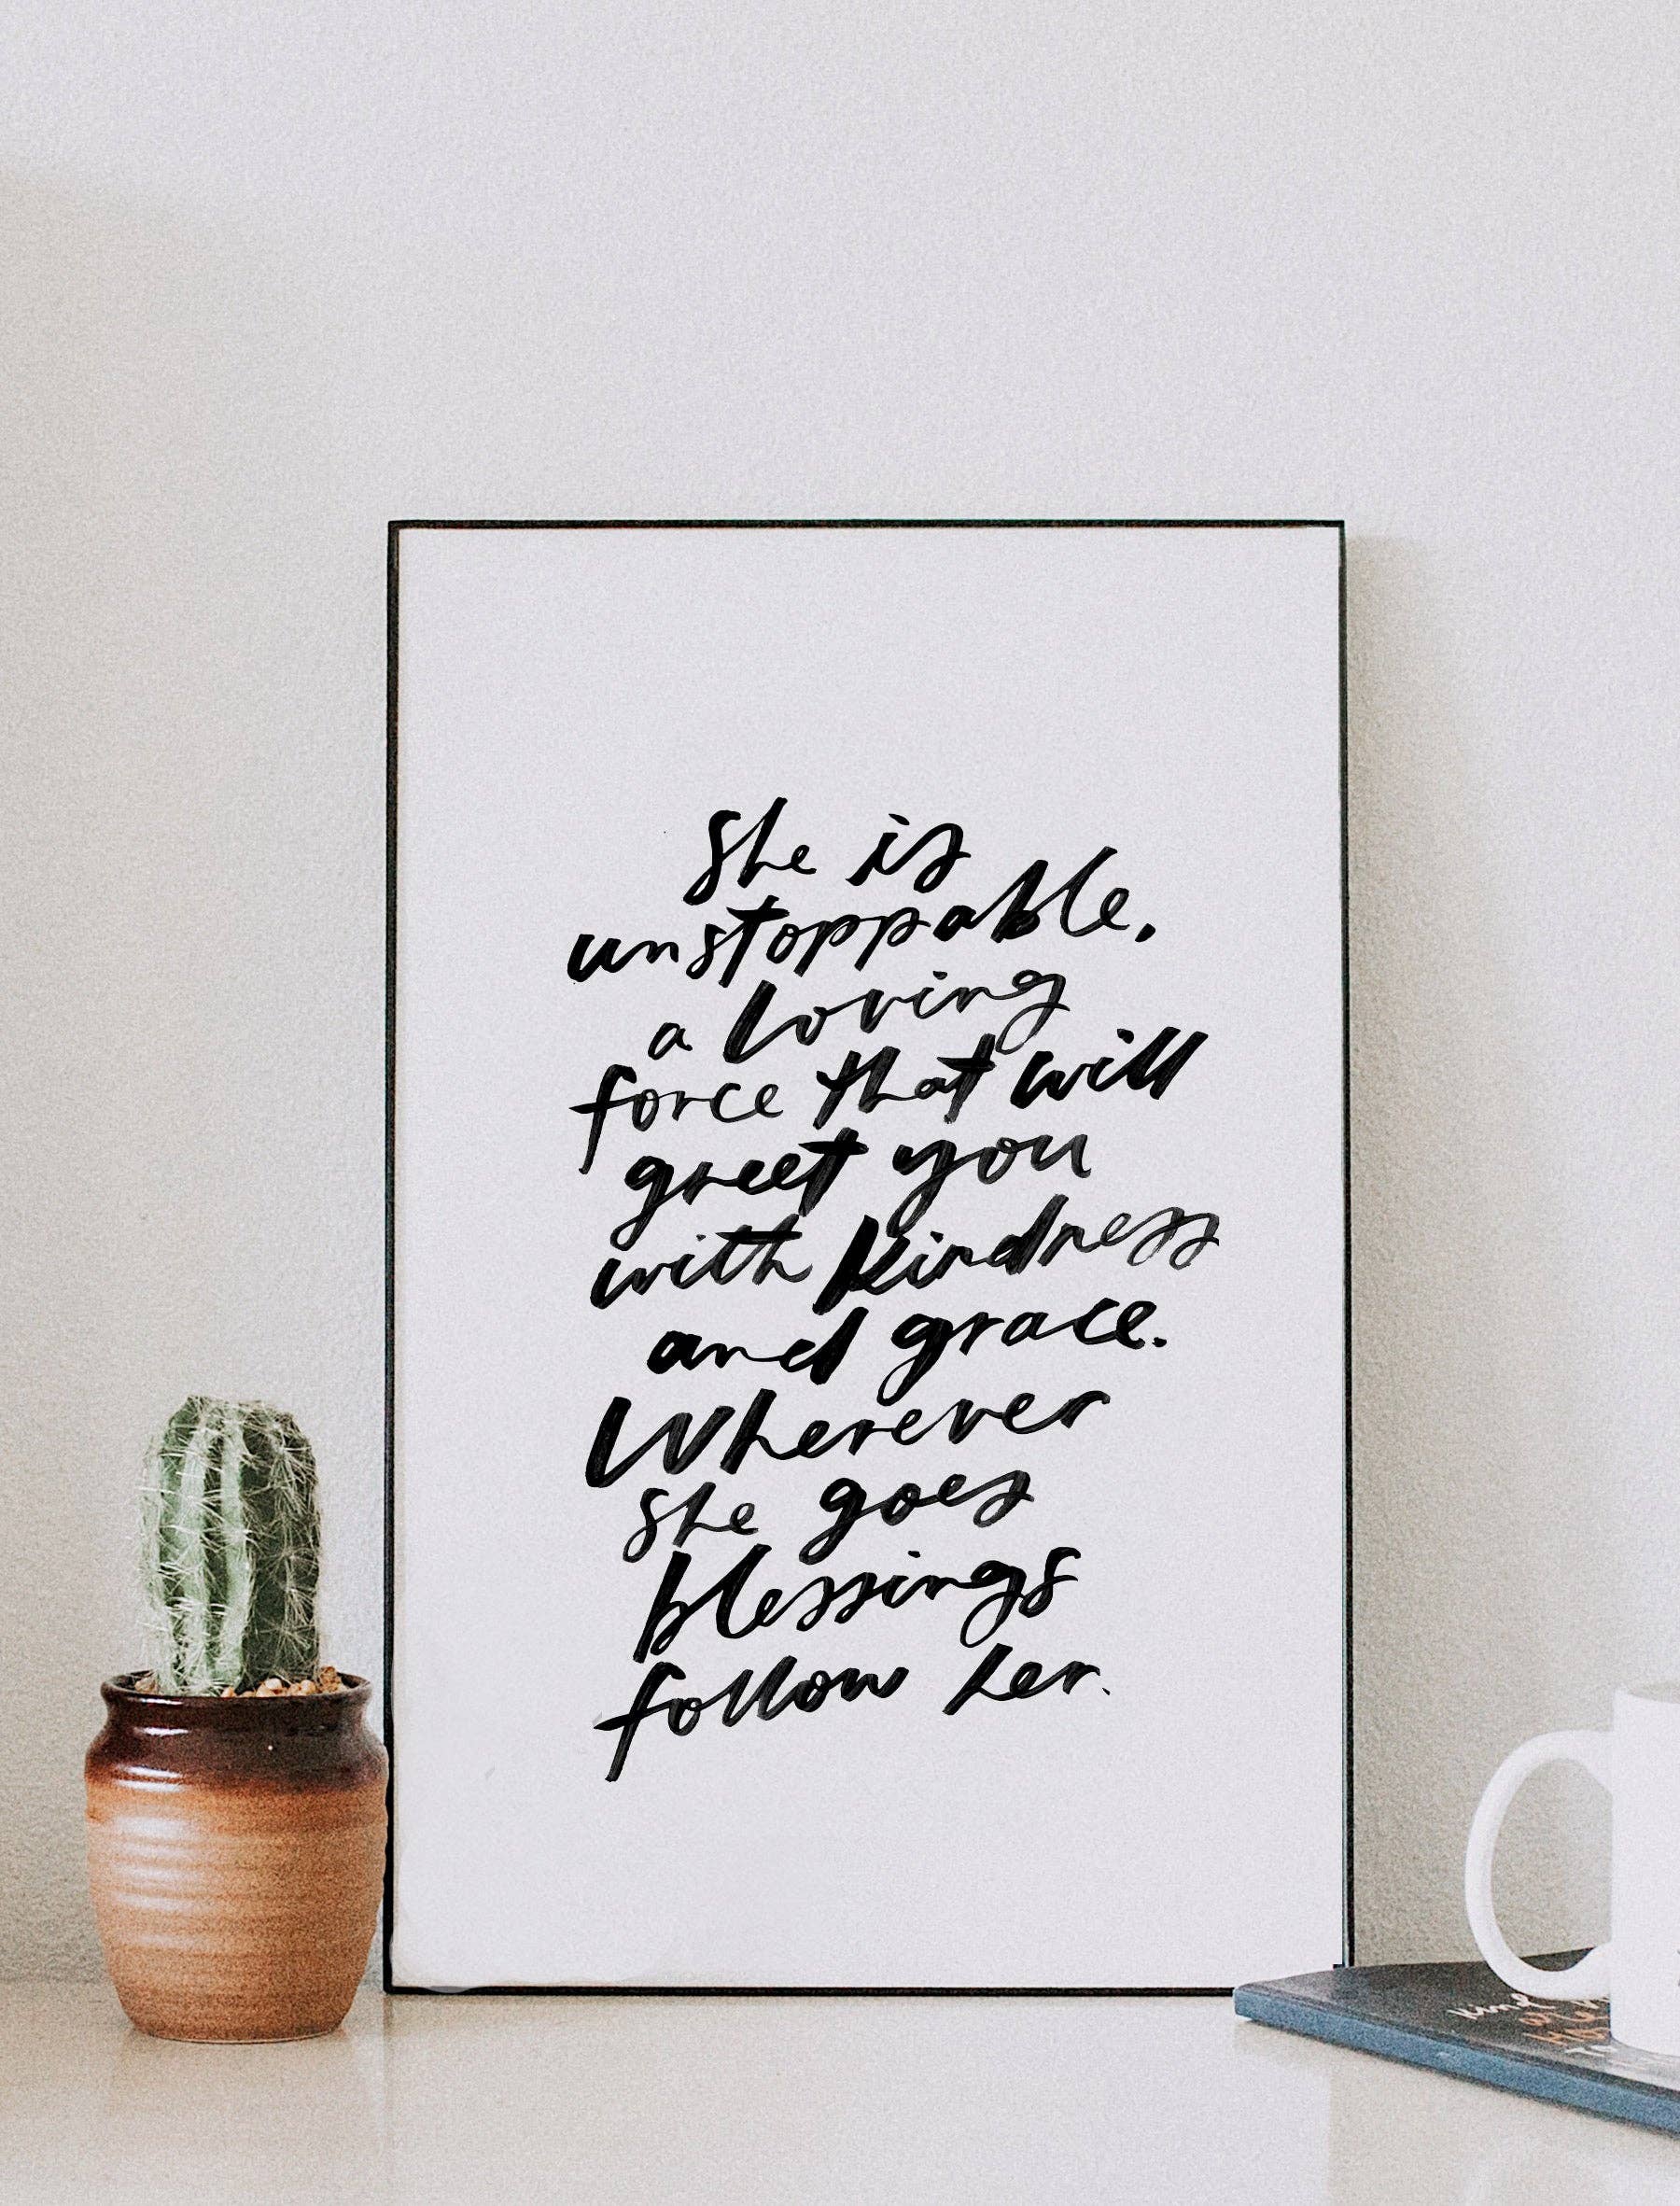 She is
unstoppable.
a loving
force that will
greet you
with kindness
and grace.
Wherever
she goes
blessings
follow her.